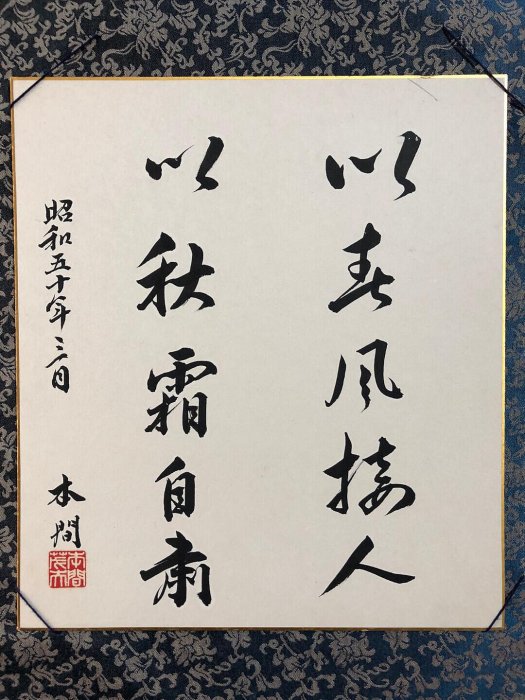 以春風接人
以秋霜自粛
昭和五十年三月
本間